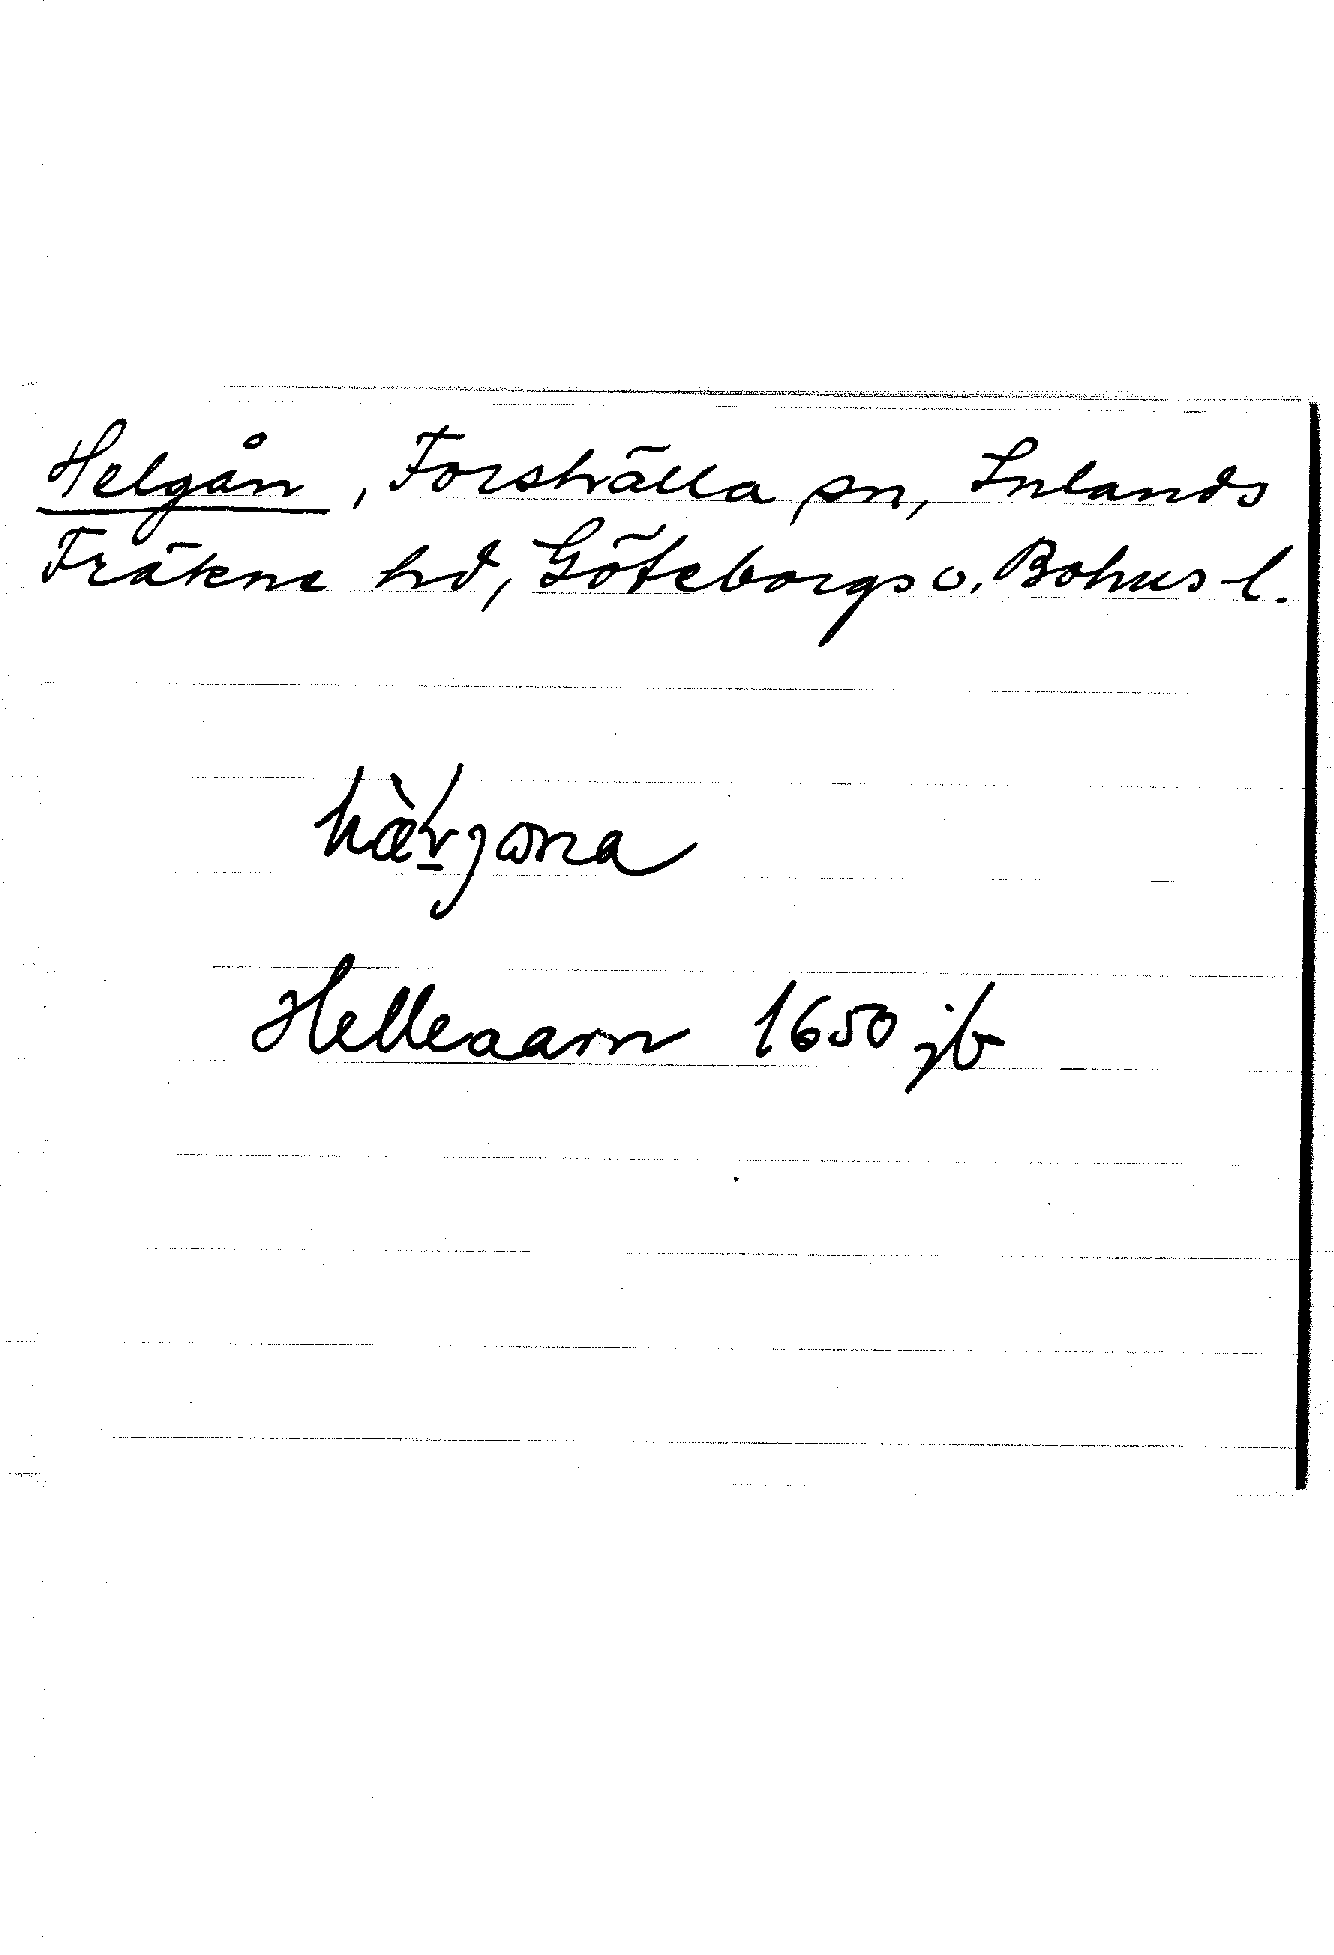 Helgån, Forshälla sn, Inlands
Fräkne hd, Göteborgs o. Bohus l.
Helleaarn 1650 jb